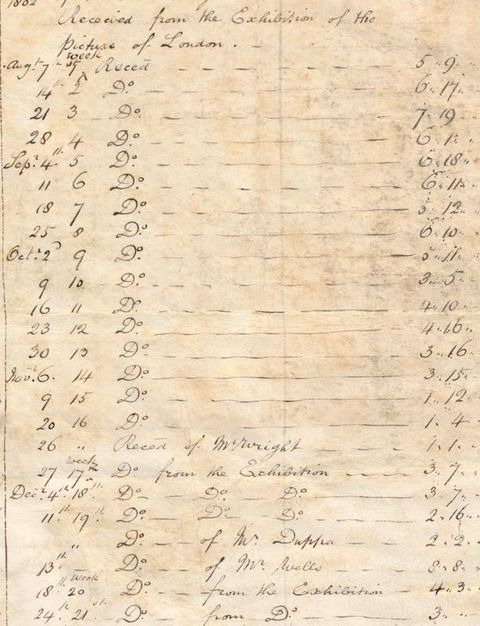 1802
Received from the Exhibition of the
Picture of London.
Augt. 7th 1st Week Reced 5 " 9 "
14th 2 Do. 6 " 17 "
21 3 Do. 7 " 19
28 4 Do. 6 " 1 "
Sepr. 4th 5 Do. 6 " 18 "
11 6 Do. 6 " 11 "
18 7 Do. 5 " 12
25 8 Do. 6 " 10
Octr. 2d 9 Do. 5 " 11
9 10 Do. 3 " 5 "
16 11 Do. 4 " 10 "
23 12 Do. 4 " 16 "
30 13 Do. 3 " 16
Nov. 6 14 Do. 3 " 15
9 15 Do. 1 " 12
20 16 Do. 1 " 4
26 " Reced of Mr. Wright 1 " 1 "
27 17th week Do. from the Exhibition 3 " 7 "
Decr. 4th 18th Do. Do. Do. 3 " 7 "
11th 19th Do. Do. Do. 2 " 16
" Do. of Mr. Duppa 2 " 2 "
13th Do. of Mr. Wells 8 " 8 "
18th 20 Week Do. from the Exhibition 4 " 3 "
24th 21st Do. from Do. 3 "